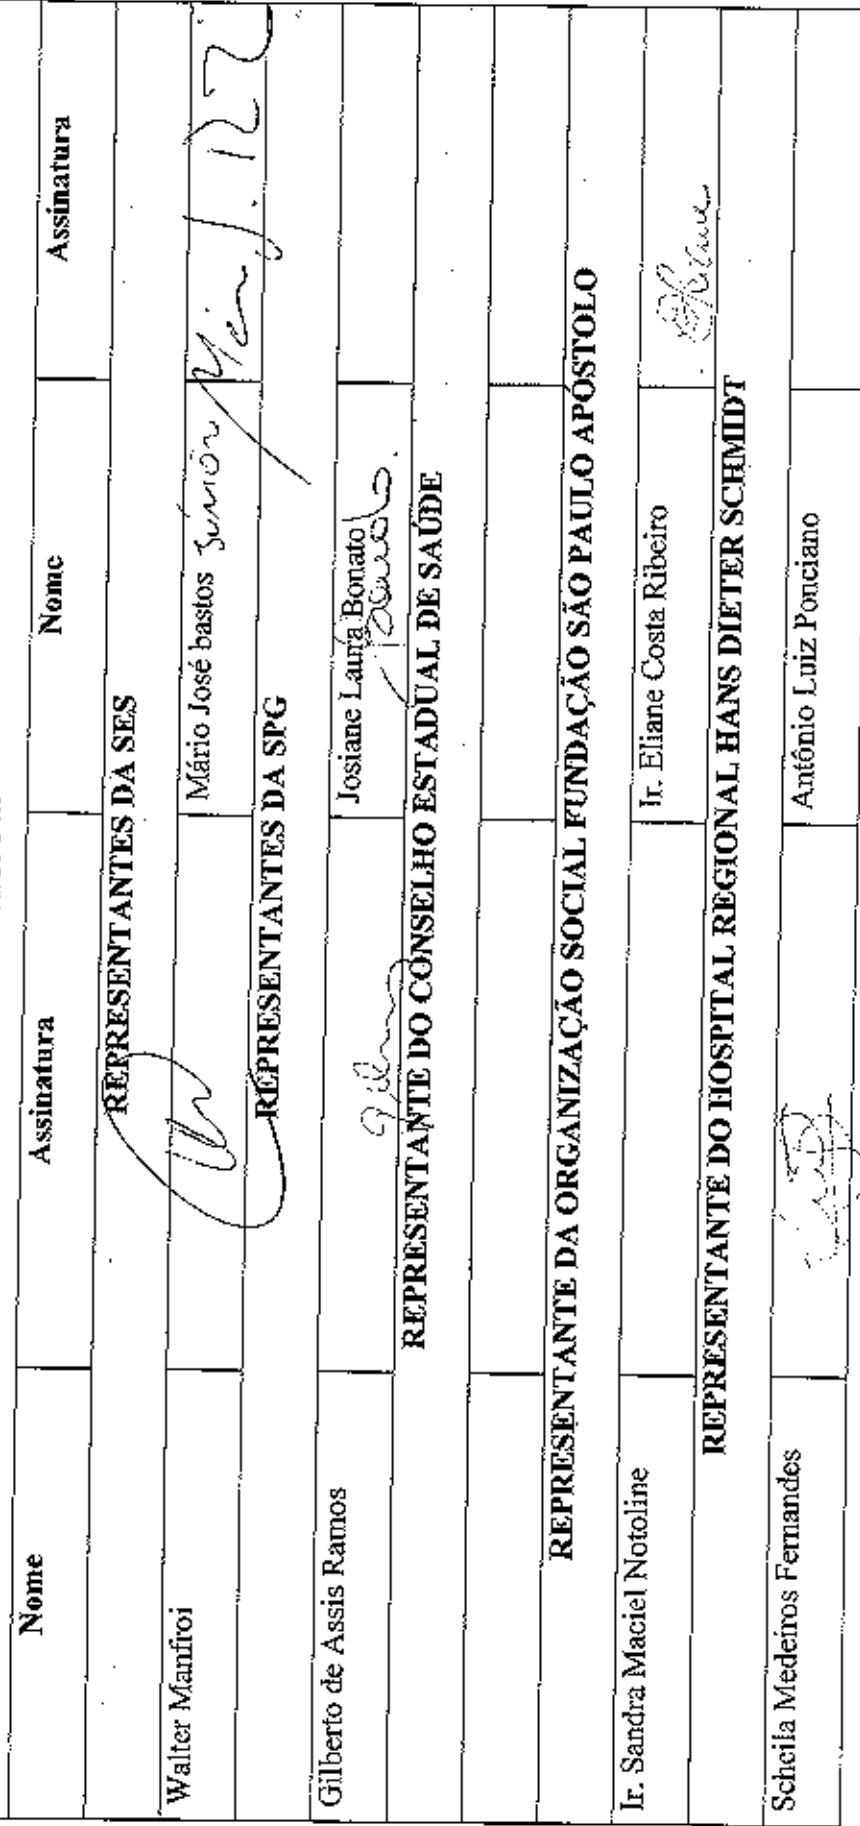 Nome Assinatura Nome Assinatura
REPRESENTANTES DA SES
Walter Manfroi Mário José bastos Júnior
REPRESENTANTES DA SPG
Gilberto de Assis Ramos Josiane Laura Bonato
REPRESENTANTE DO CONSELHO ESTADUAL DE SAÚDE
REPRESENTANTE DA ORGANIZAÇÃO SOCIAL FUNDAÇÃO SÃO PAULO APÓSTOLO
Ir. Sandra Maciel Notoline Ir. Eliane Costa Ribeiro
REPRESENTANTE DO HOSPITAL REGIONAL HANS DIETER SCHMIDT
Scheila Medeiros Fernandes Antônio Luiz Ponciano